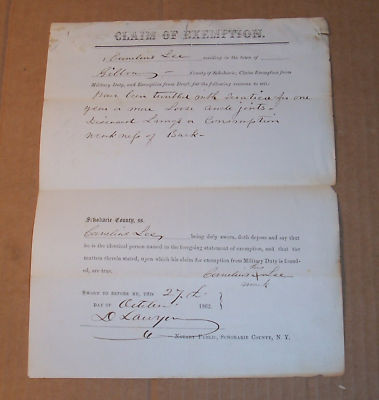 CLAIM OF EXEMPTION.
I Cornelius Lee residing in the town of
Gilboa County of Schoharie, Claim Exemption from
Military Duty, and Exemption from Draft, for the following reasons to wit:
Have been troubled with Sciatica for one
year or more Loose ancle joints-
Diseased Lungs or Consumption
Weakness of Back-
Schoharie County, ss.
Cornelius Lee being duly sworn, doth depose and say that
he is the identical person named in the foregoing statement of exemption, and that the
matters therein stated, upon which his claim for exemption from Military Duty is found-
ed, are true.
Cornelius his X mark Lee
SWORN TO BEFORE ME, THIS 27th
DAY OF October 1862.
D Lawyer
NOTARY PUBLIC, SCHOHARIE COUNTY, N. Y.